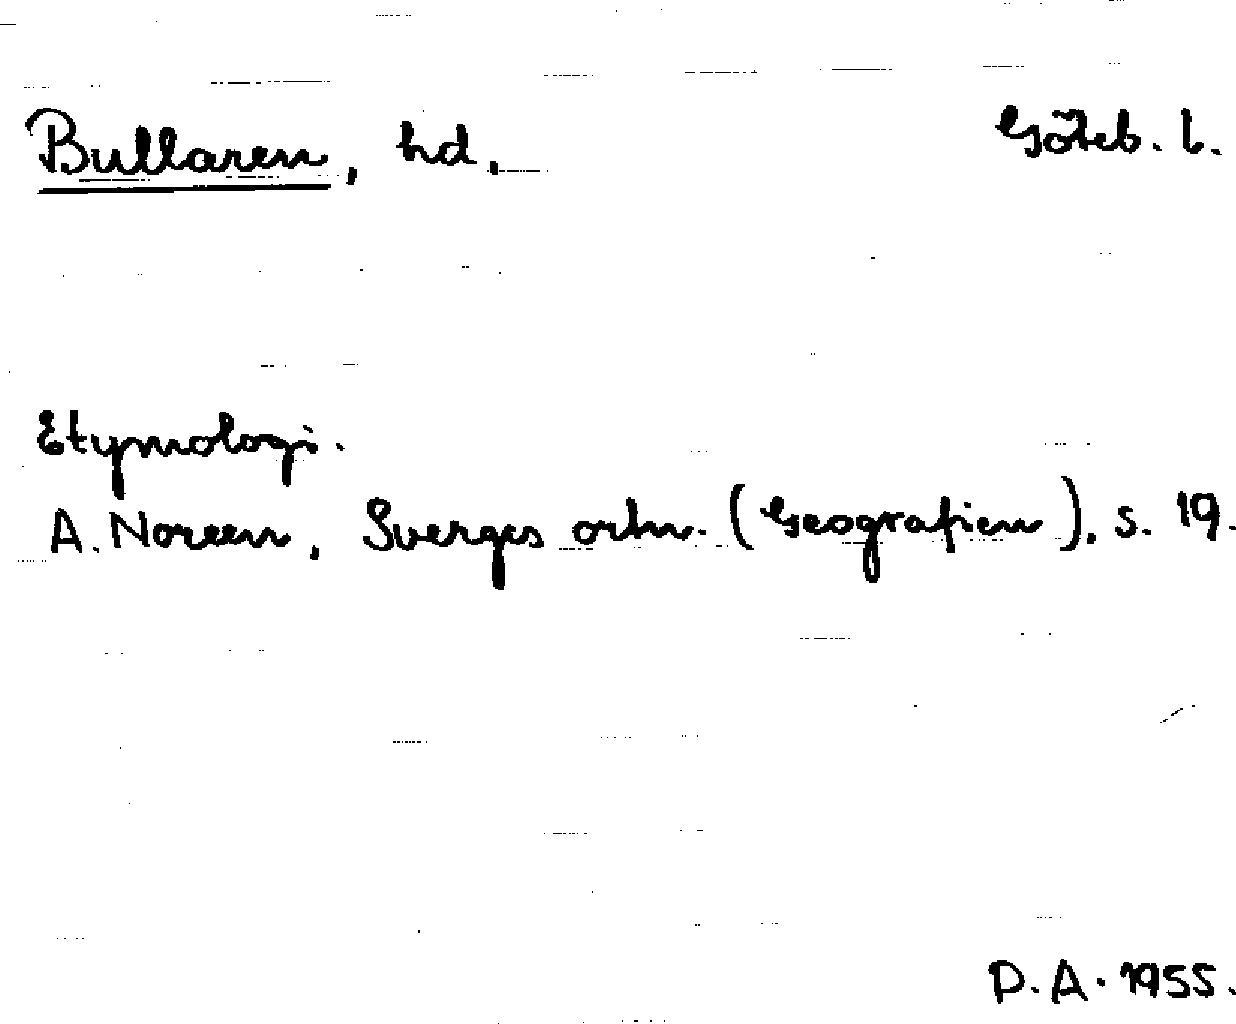 Bullaren, hd. Göteb. l.
Etymologi.
A. Noreen, Sverges ortn. (Geografien), s. 19.
P. A. 1955.